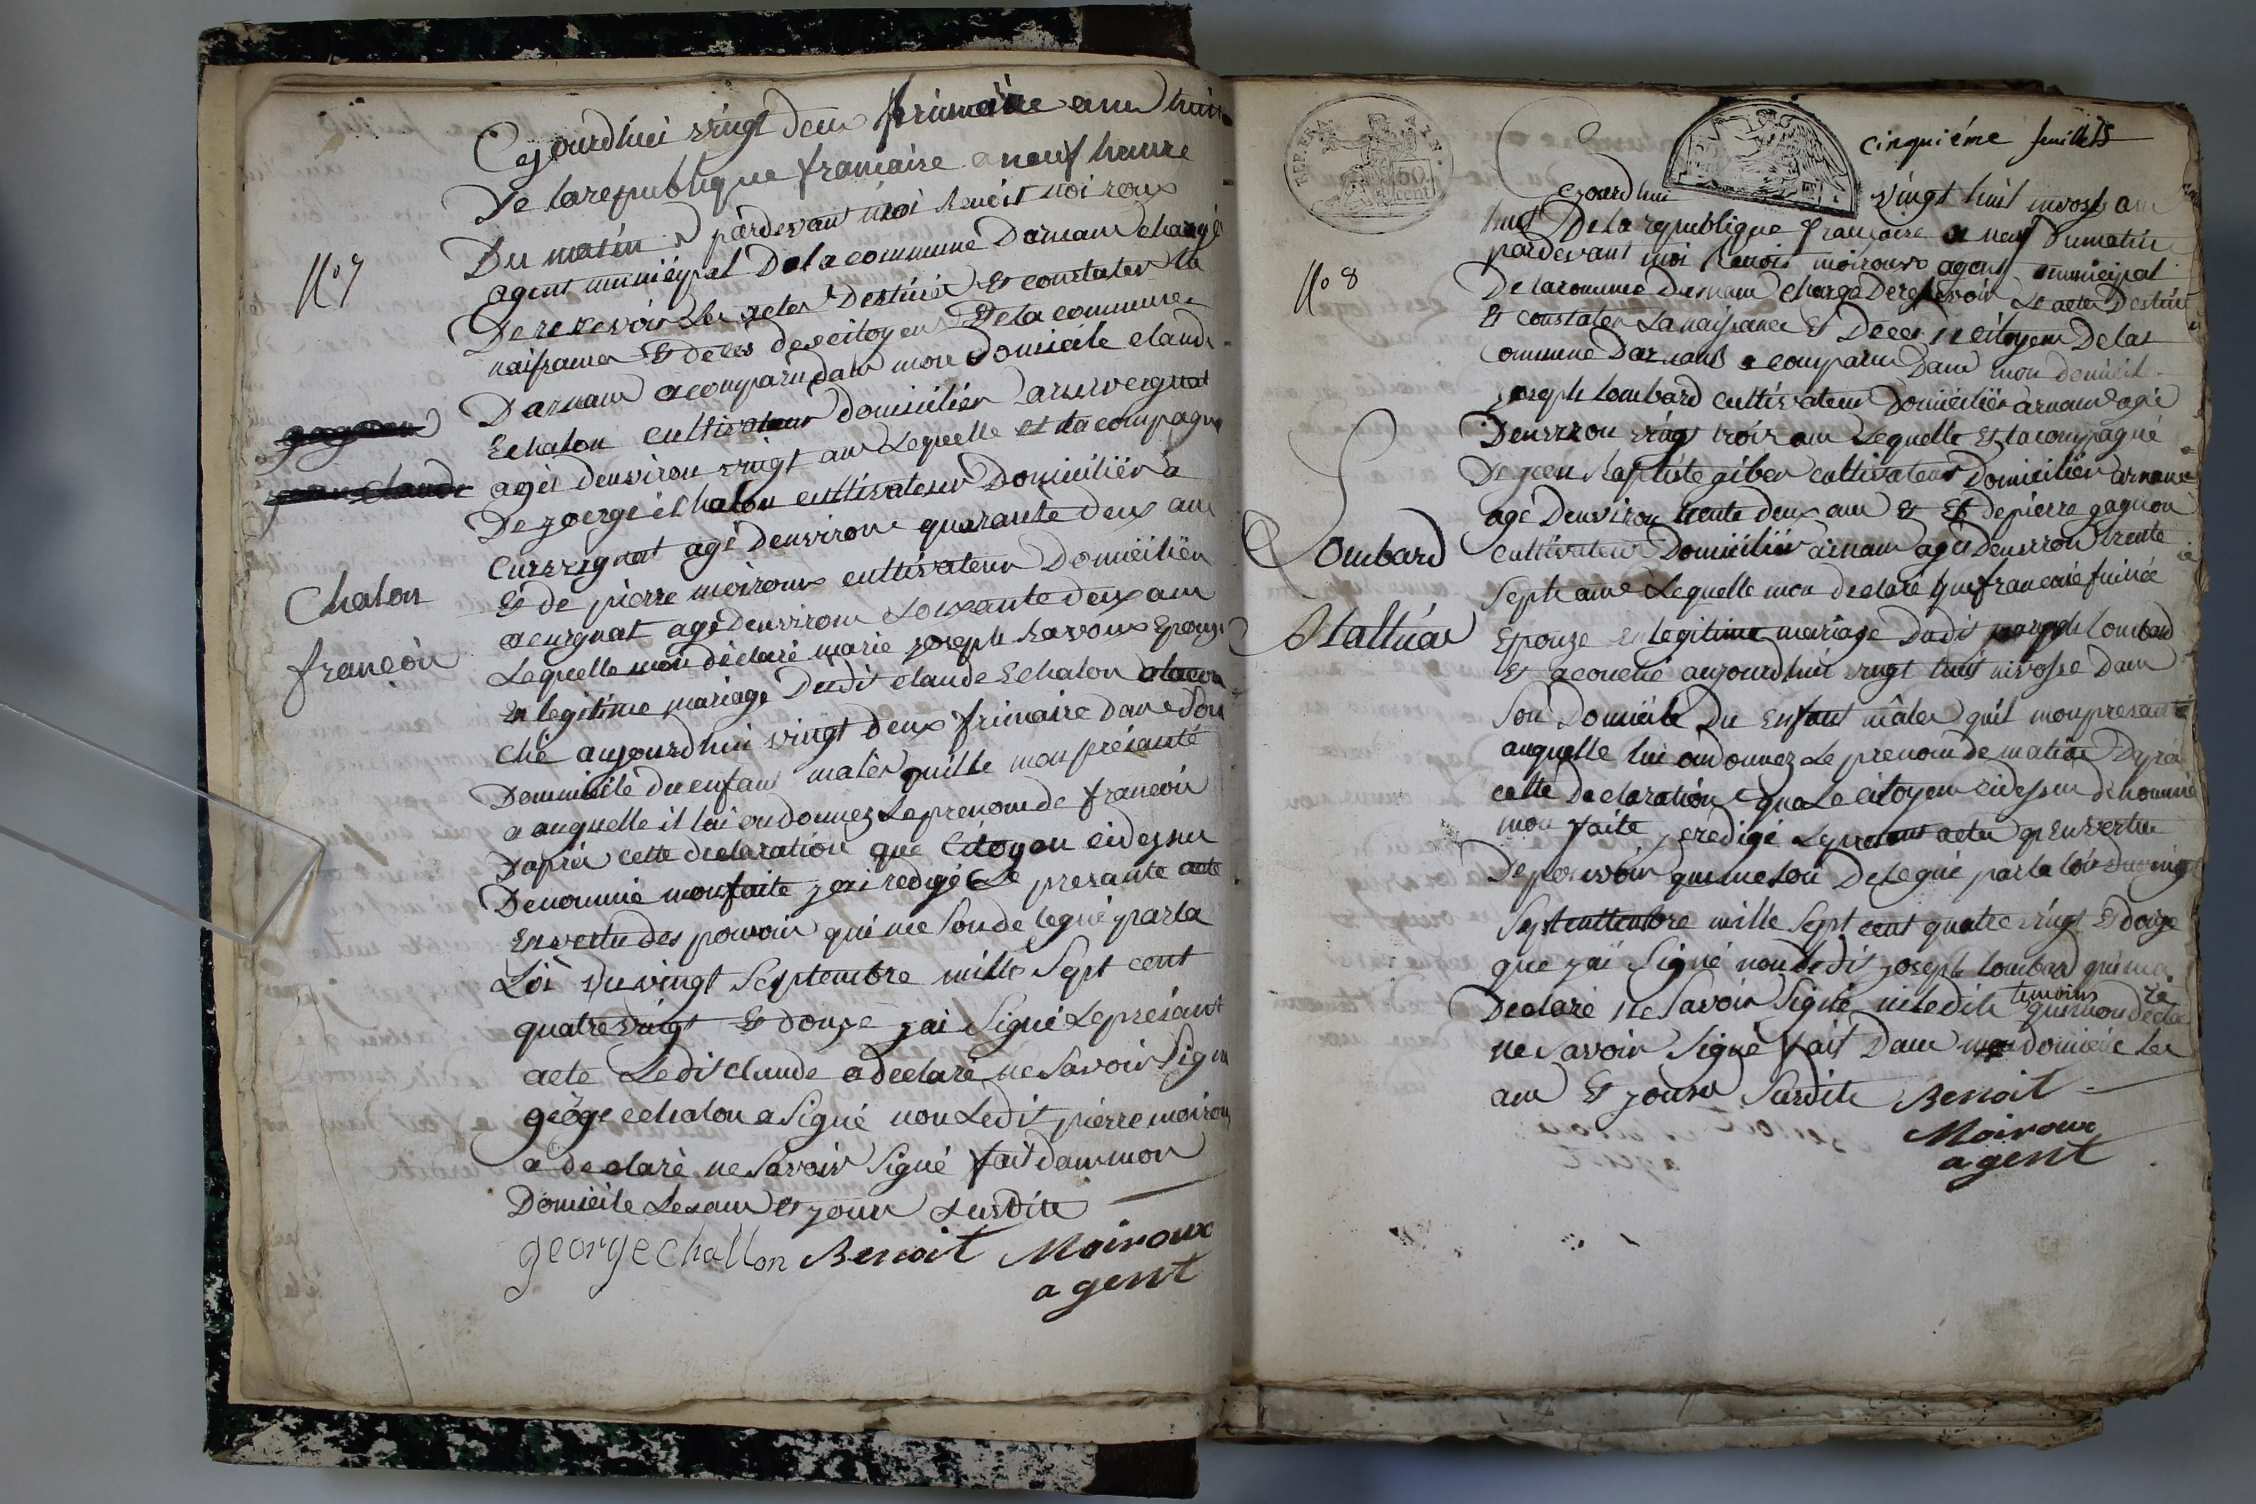 Cejourdhui vingt deux frimaire ann huit
De la republique francaise a neuf heure
Du matin pardevant moi Benoit moiroux
agent municipal De la commune Darnam chargé
De recevoir Les actes Destiné Et constater la
naissance Et deces des citoyens De la commune
Darnam a comparu dans mon domicile claude
Echalon cultivateur domicilier a cuvergnat
agéé denviron vingt ans Lequelle est tacompagné
De zoerge échalon cultivateur Domicilier a
cuvergnat agé denviron quarante deux ans
Et de pierre moiroux cultivateur Domicilier
a cuvrgnat agé denviron soixante deux ans
Lequelle mon déclaré marie zoseph Epouze
En legitime mariage Dudit claude Echalon a lacou
ché aujourdhui vingt deux frimaire dans Son
Domicile du enfant maler quille mon présanté
a auquelle il lui on donnez Le prenom de francoir
Daprér cette declaration que Citoyen cidessu
Denommé mon faite jai redigé Le presante acte
En vertu des povoir qui me Son de legué par la
Loi Du vingt Septembre mille Sept cent
quatre vingt Et douze jai Signé Le présant
acte Ledit claude a declaré ne Savoir Signé
géoge echalon a Signé non Ledit pierre moiroux
a declaré ne Savoir Signé fait dans mon
Domicile Les ans Et jour Susdite
george challon Benoit Moiroux
agent
No 7
jean claude
Chalon
francoir
cinquiéme feuillets
Cejourdhui vingt huit nivosse ann
huit De la republique francaise a neuf Du matin
pardevant moi Benoit moiroux agent municipal
De la commune Darnam chargé De recevoir Le acte Destiné
Et constater La naissance Et Deces De citoyens De la
commune Darnam a comparu Dans mon domicile
zoseph Lombard cultivateur Domicilier arnam agé
Denviron vingt trois ans Lequelle Est tacompagné
De jean Baptiste giber cultivateur Domicilier arnam
agé Denviron trente deux ans Et Et de pierre gagnon
cultivateur Domicilier arnam agéé denviron trente
Sept ans Lequelle mon declaré que francoise
Epouze En legitime mariage Dudit zoseph Lombard
Et acouché aujourdhui vingt huit nivosse dans
Son Domicile Du Enfant mâler quil mon presanté
auquelle lui on donnez Le prenom de matiar Daprér
cette declaration que Le citoyen cidessu dénommé
mon faite jeredigé Le presant acte En vertu
De povoir qui me Son De Legué par la loi du vingt
Septembre mille Sept cent quatre vingt Et douze
que jai Signé non Ledit zoseph Lombard qui ma
Declaré ne Savoir Signé ni ledite temoins qui mon decla ré
ne Savoir Signé fait Dans mon domicile Les
ans Et jours Susdite Benoit
Moiroux
agent
No 8
Lombard
Mattiar